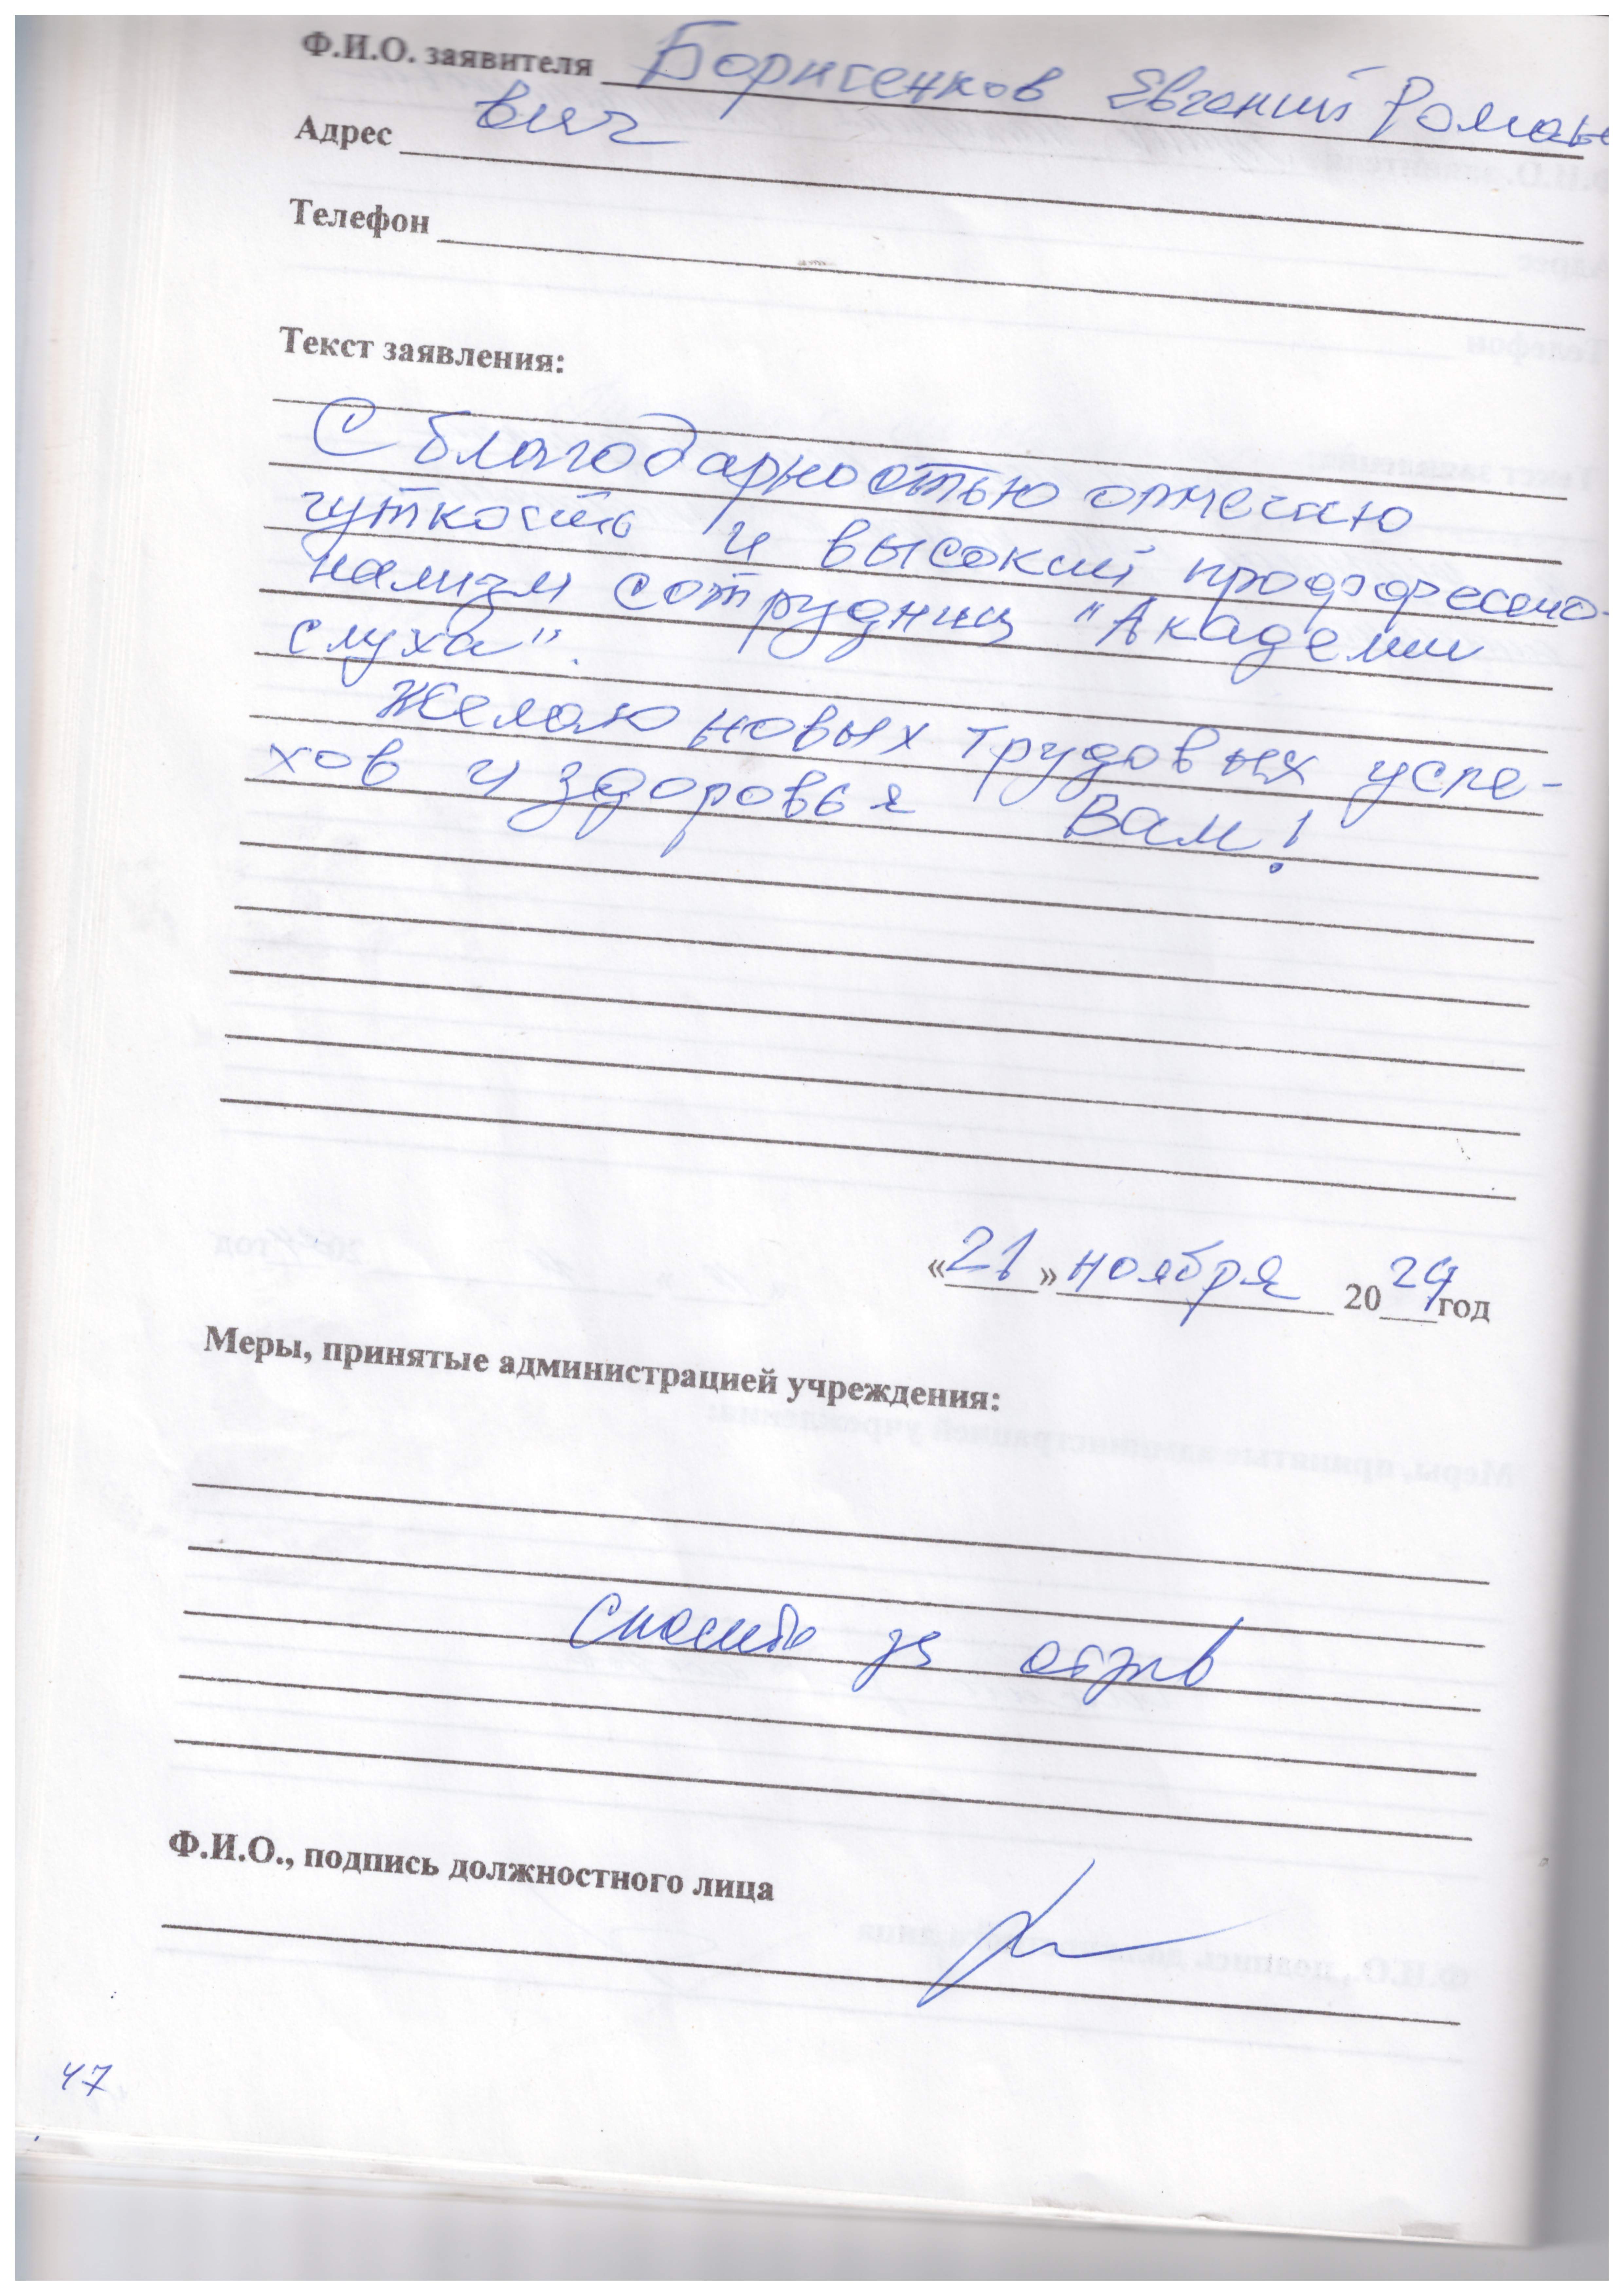 Ф.И.О. заявителя Борисенков Евгений Романо
Адрес вич
Телефон
Текст заявления:
С благодарностью отмечаю
чуткость и высокий профессио-
нализм сотрудниц "Академии
слуха".
Желаю новых трудовых успе-
хов и здоровья Вам!
«21» ноября 2024 год
Меры, принятые администрацией учреждения:
Спасибо за отзыв
Ф.И.О., подпись должностного лица
47